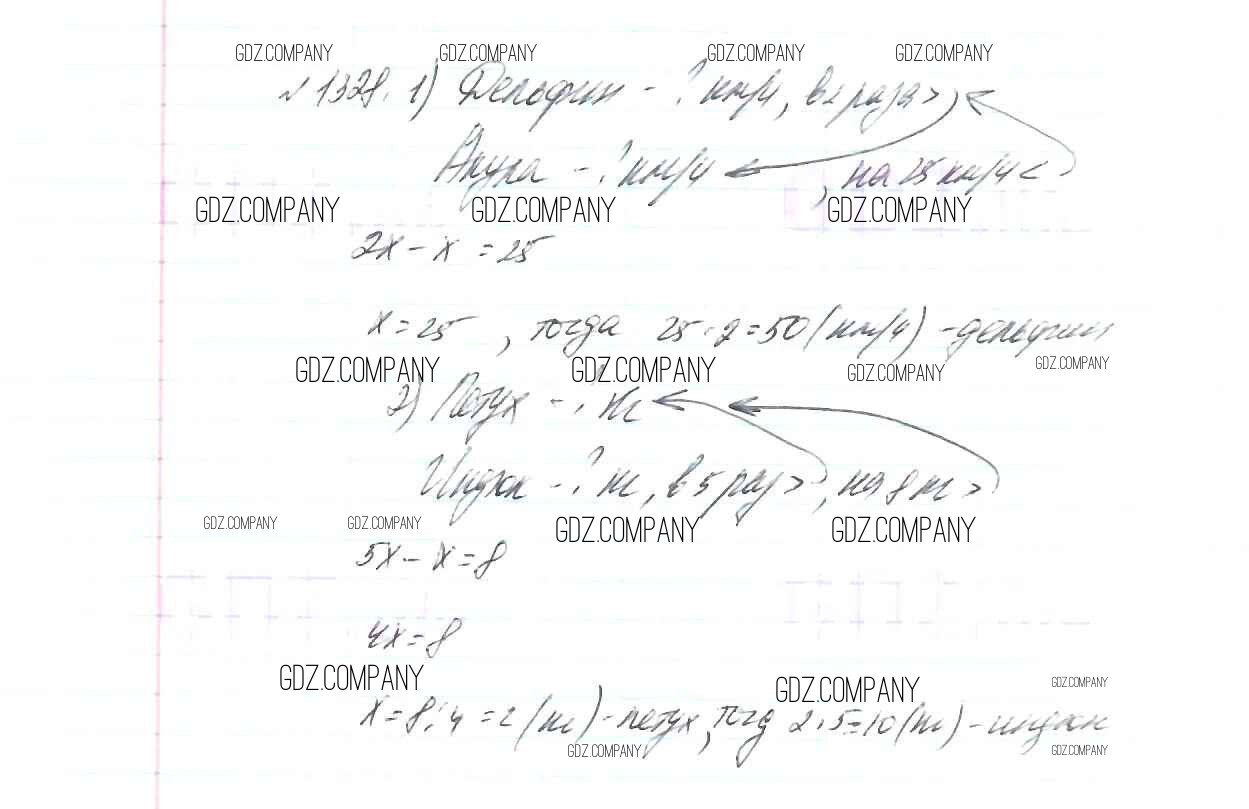 GDZ.COMPANY GDZ.COMPANY GDZ.COMPANY GDZ.COMPANY
№1328. 1) Дельфин - ? км/ч, в 2 раза >
Акула - ? км/ч, на 25 км/ч <
GDZ.COMPANY GDZ.COMPANY GDZ.COMPANY
2x - x = 25
x = 25, тогда 25 · 2 = 50 (км/ч) - дельфин
GDZ.COMPANY GDZ.COMPANY GDZ.COMPANY GDZ.COMPANY
2) Петух - ? кг
Индюк - ? кг, в 5 раз >, на 8 кг >
GDZ.COMPANY GDZ.COMPANY GDZ.COMPANY GDZ.COMPANY
5x - x = 8
4x = 8
GDZ.COMPANY GDZ.COMPANY GDZ.COMPANY
x = 8 : 4 = 2 (кг) - петух, тогд 2 · 5 = 10 (кг) - индюк
GDZ.COMPANY GDZ.COMPANY